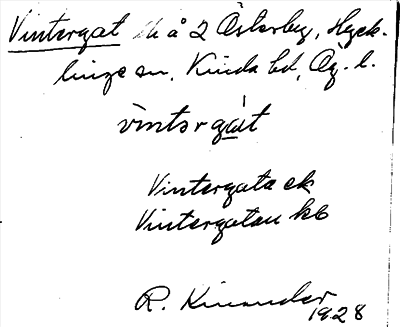 Vintergat på 2 Österby, Hyck-
linge sn, Kinda hd, Ög. l.
vìntərga̲t
Vintergata ek
Vintergatan kb
R. Kinander
1928